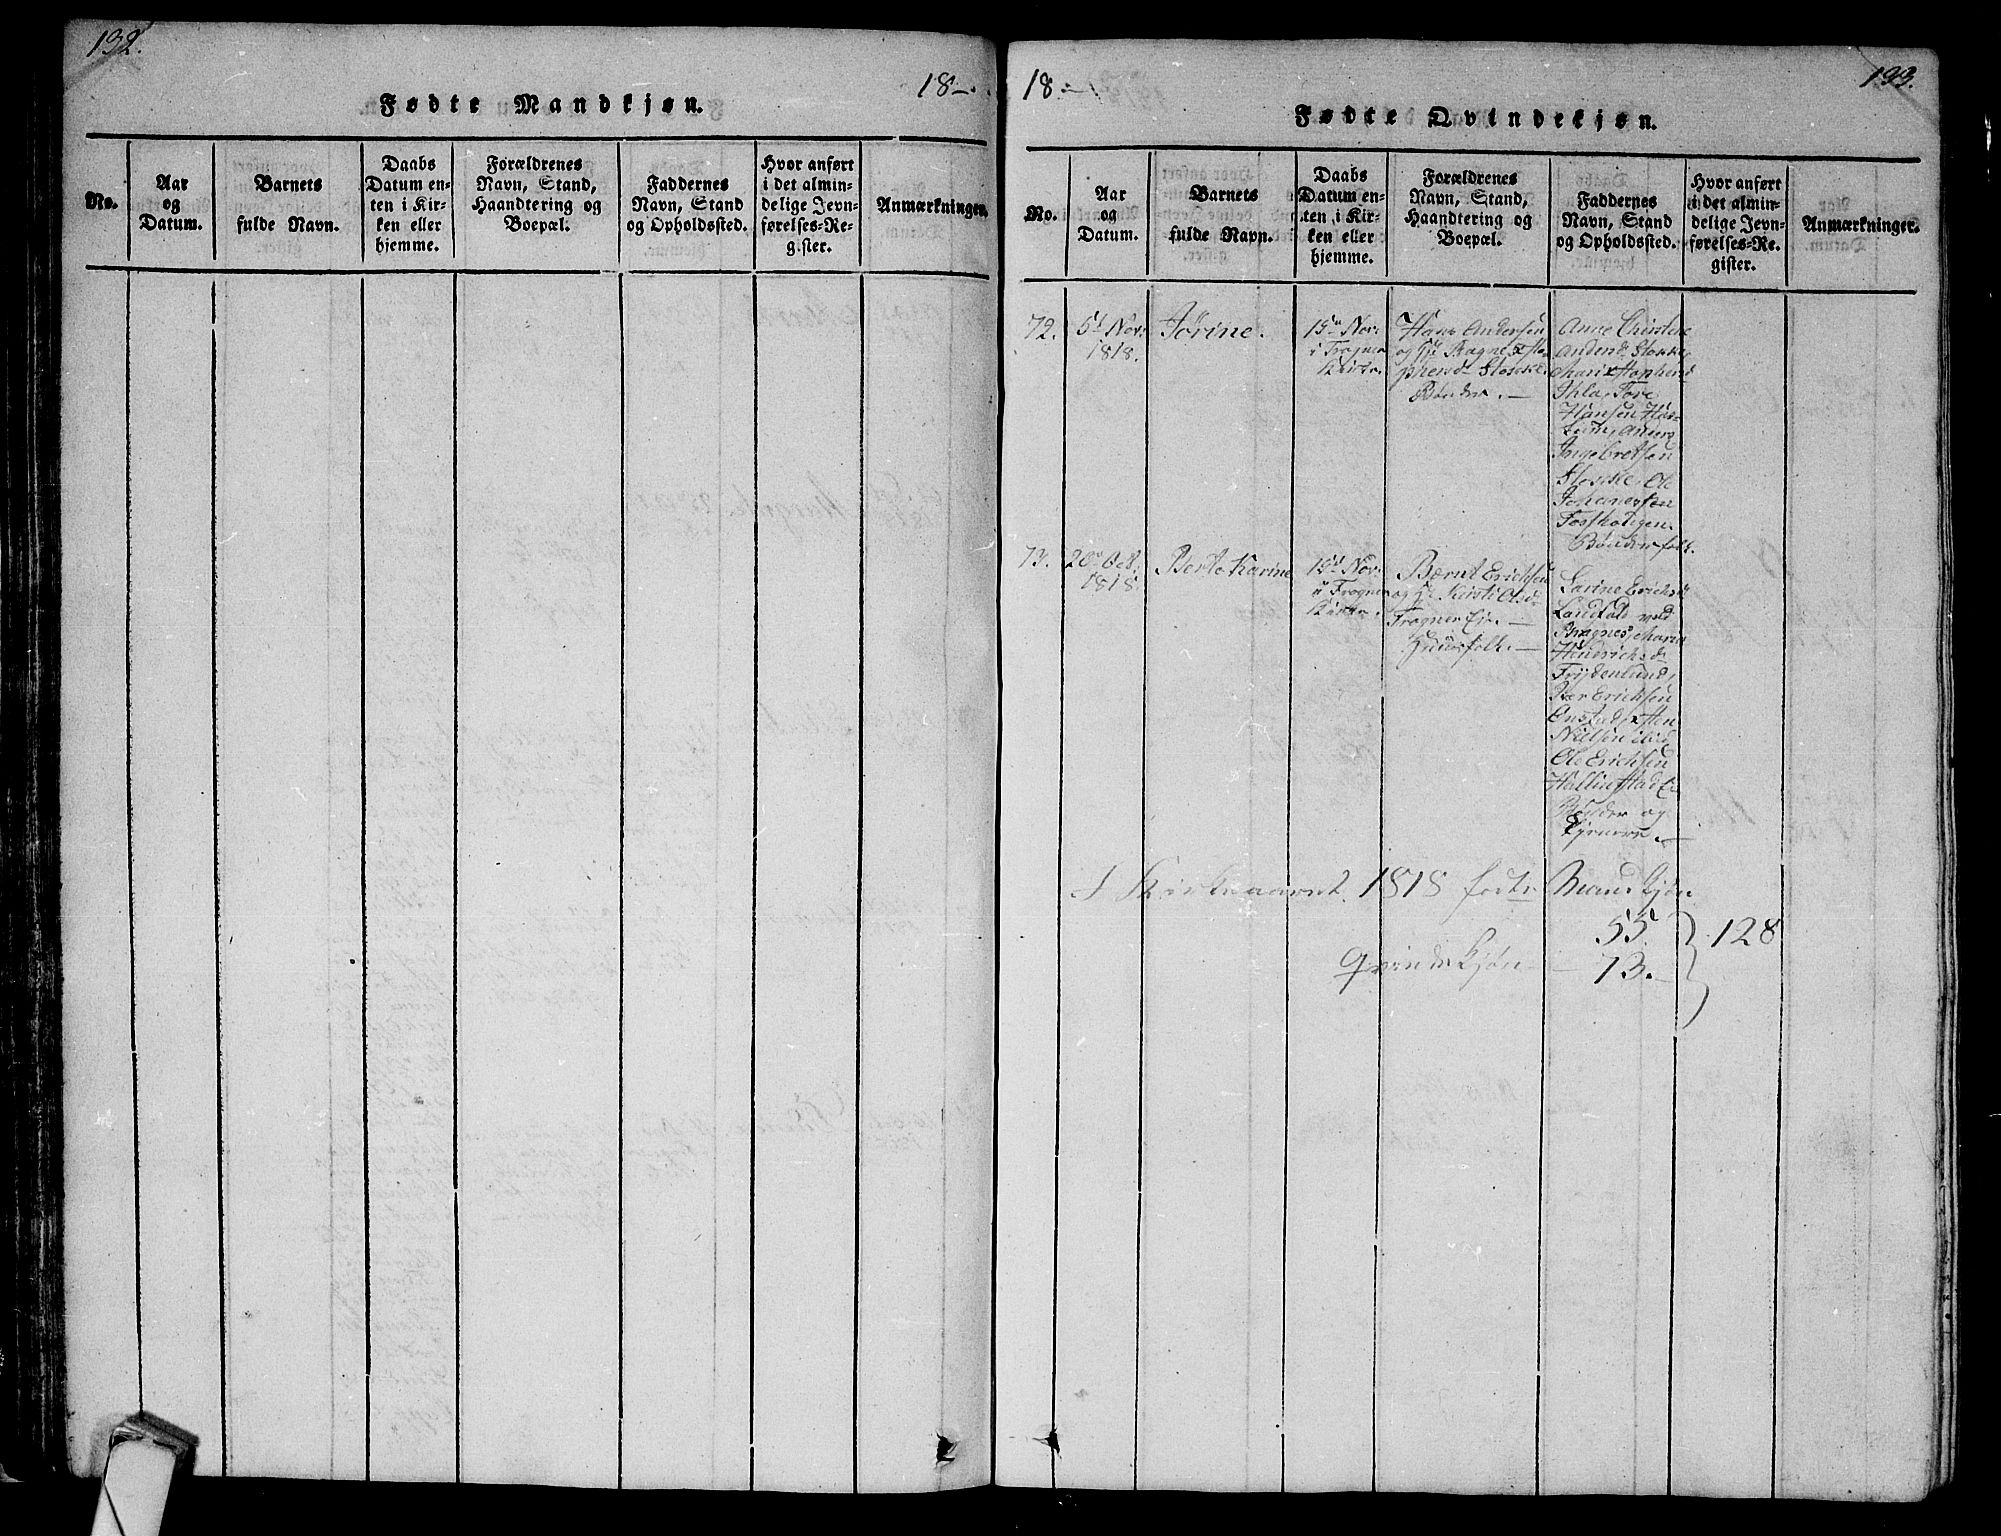 132.
18-.
Fødte Mandkjøn.
No.
Aar
og
Datum.
Barnets
fulde Navn.
Daabs
Datum en-
ten i Kir-
ken eller
hjemme.
Forældrenes
Navn, Stand,
Haandtering og
Boepæl.
Faddernes
Navn, Stand
og Opholdssted.
Hvor anført
i det almin-
delige Jevn-
førelses-Re-
gister.
Anmærkninger.
18-
133.
Fødte Qvindekjøn.
No.
Aar
og
Datum.
Barnets
fulde Navn.
Daabs
Datum en-
ten i Kir-
ken eller
hjemme.
Forældrenes
Navn, Stand,
Haandtering og
Boepæl.
Faddernes
Navn, Stand
og Opholdssted.
Hvor anført
i det almin-
delige Jevn-
førelses-Re-
gister.
Anmærkninger.
72.
5t Nov.
1818.
Jørine.
15de Nov.
i Frogner
Kirke.
Hans Andersen
og Ragne
phersd
Bønder.
Anne Christine
Andersd
Mari
Ihla, Tore
Hansen
Anders
Ingebretsen
Ole
Johannessen
Bønderfolk.
73.
20de Oct.
1818.
Berte Karine
15de Nov.
i Frogner
Kirke.
Bernt Erichsen
og Kirsti Olsd
Frogner Eie.
Huusfolk.
Karine Erichsd
Landfald ved
Bragnes, Maria
Hindrichsd
Frydenlund,
Per Erichsen
Enstad,
Nielsen ibid
Ole Erichsen
Hallingstad E.
Bønder og
I Kirkeaaret 1818 fødte Mandkjøn
55.
128
Qvindekjøn
73.